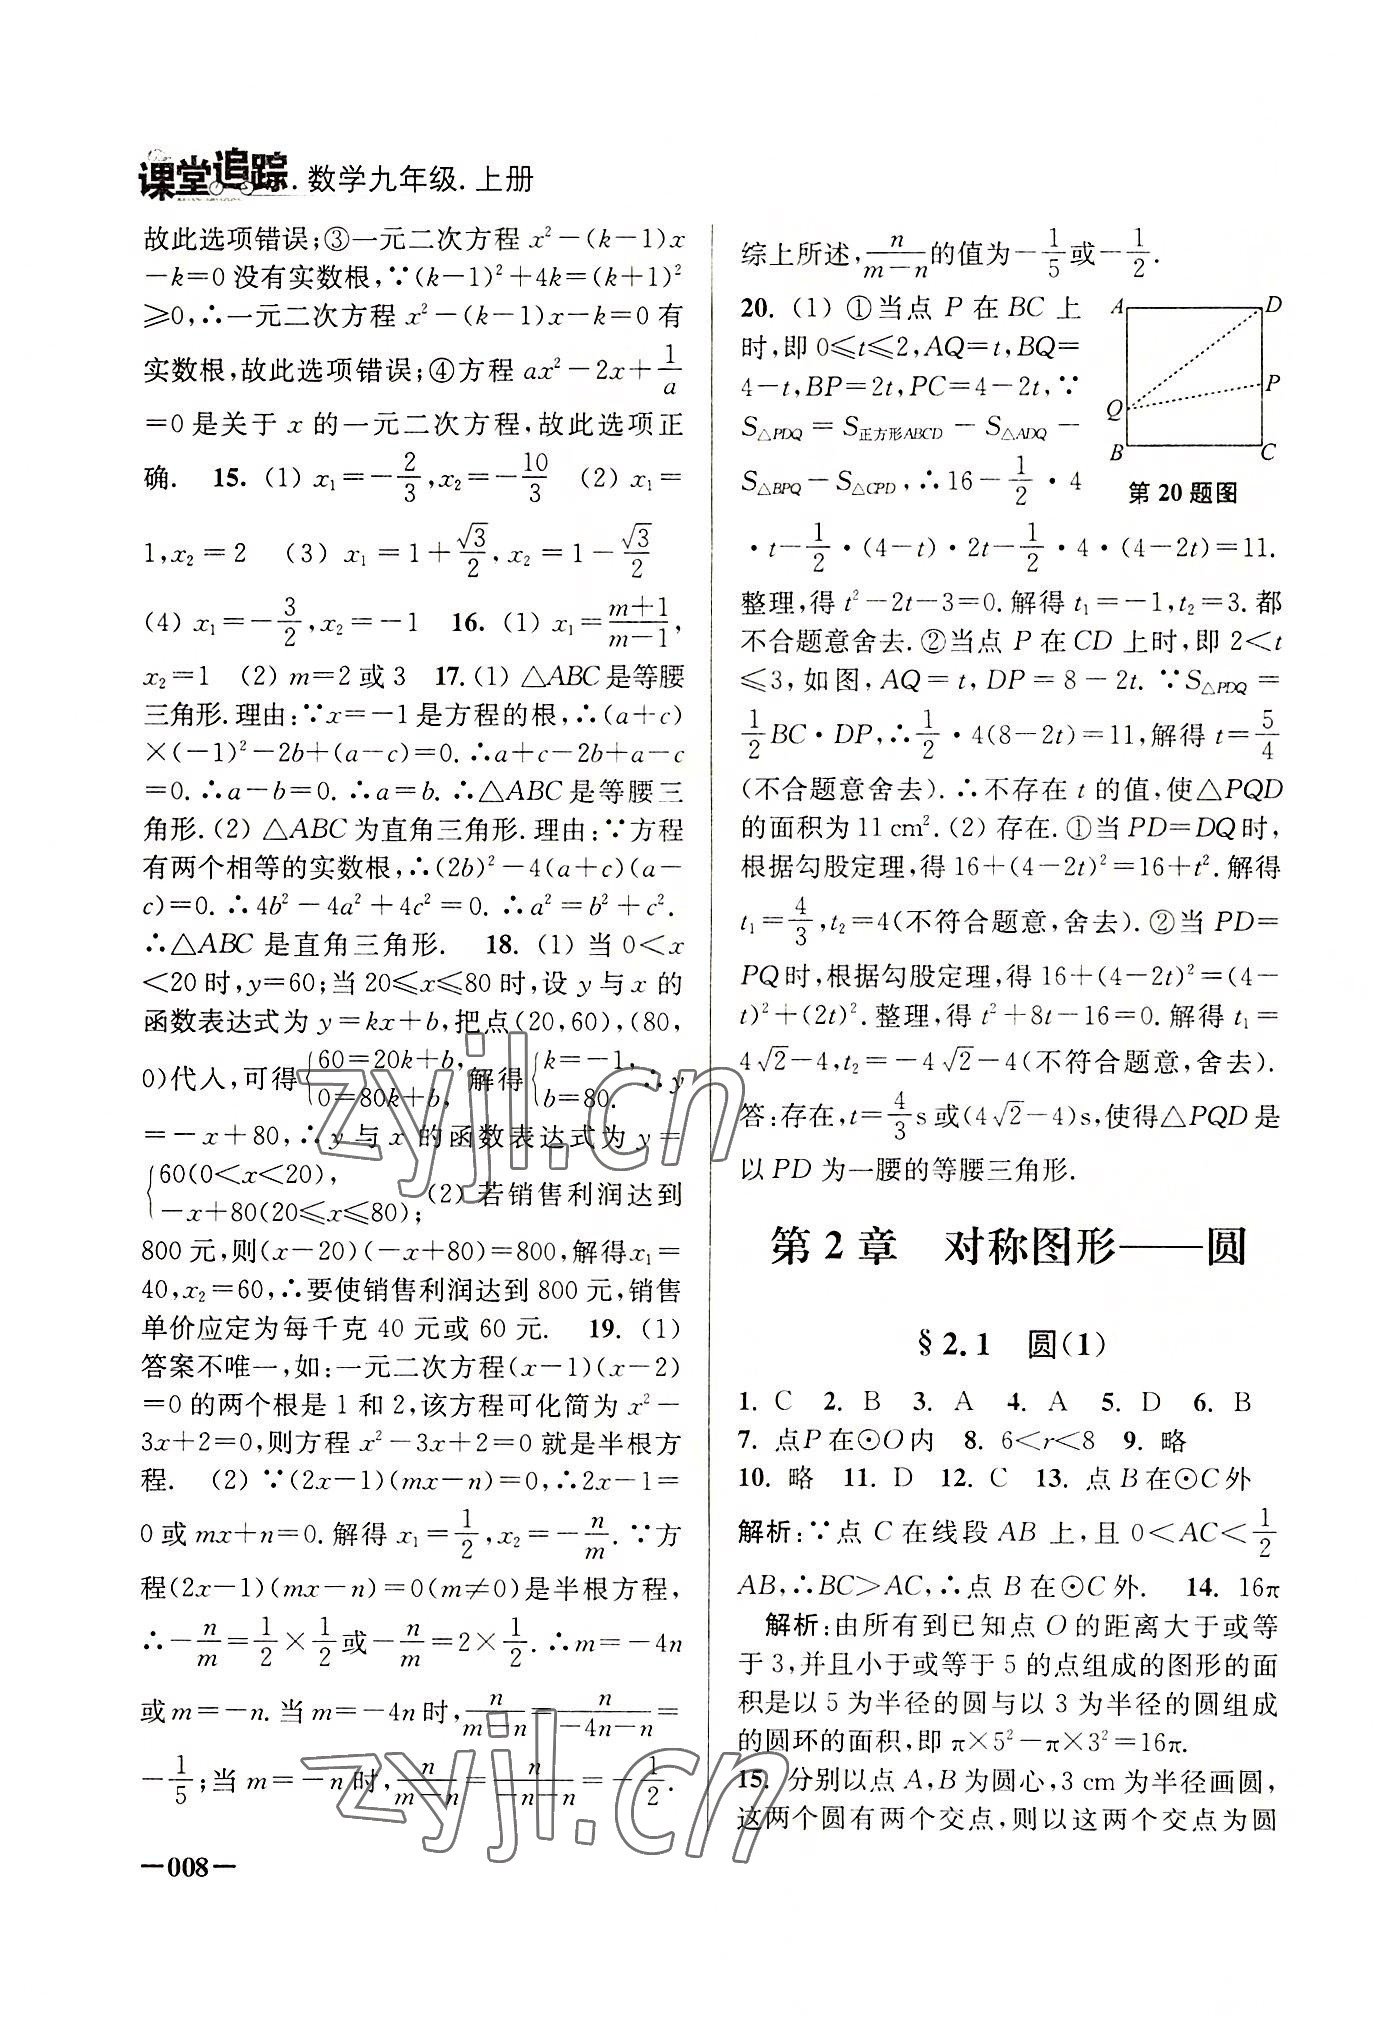 课堂追踪.数学九年级.上册
故此选项错误;③一元二次方程 x²-(k-1)x
-k=0 没有实数根,∵(k-1)²+4k=(k+1)²
≥0,∴一元二次方程 x²-(k-1)x-k=0 有
实数根,故此选项错误;④方程 ax²-2x+1/a
=0 是关于 x 的一元二次方程,故此选项正
确. 15. (1) x₁=-2/3,x₂=-10/3 (2) x₁=
1,x₂=2 (3) x₁=1+√3/2,x₂=1-√3/2
(4) x₁=-3/2,x₂=-1 16. (1) x₁=(m+1)/(m-1),
x₂=1 (2) m=2 或 3 17. (1) △ABC 是等腰
三角形.理由:∵x=-1 是方程的根,∴(a+c)
×(-1)²-2b+(a-c)=0.∴a+c-2b+a-c
=0.∴a-b=0.∴a=b.∴△ABC 是等腰三
角形.(2) △ABC 为直角三角形.理由:∵方程
有两个相等的实数根,∴(2b)²-4(a+c)(a-
c)=0.∴4b²-4a²+4c²=0.∴a²=b²+c².
∴△ABC 是直角三角形. 18. (1) 当 0<x
<20 时,y=60;当 20≤x≤80 时,设 y 与 x 的
函数表达式为 y=kx+b,把点(20,60),(80,
0)代人,可得{60=20k+b, 0=80k+b, 解得{k=-1, b=80. ∴y
=-x+80,∴y 与 x 的函数表达式为 y=
{60(0<x<20), -x+80(20≤x≤80); (2) 若销售利润达到
800 元,则(x-20)(-x+80)=800,解得x₁=
40,x₂=60,∴要使销售利润达到 800 元,销售
单价应定为每千克 40 元或 60 元. 19. (1)
答案不唯一,如:一元二次方程(x-1)(x-2)
=0 的两个根是 1 和 2,该方程可化简为 x²-
3x+2=0,则方程 x²-3x+2=0 就是半根方
程. (2) ∵(2x-1)(mx-n)=0,∴2x-1=
0 或 mx+n=0.解得 x₁=1/2,x₂=-n/m.∵方
程(2x-1)(mx-n)=0(m≠0)是半根方程,
∴-n/m=1/2×1/2或-n/m=2×1/2.∴m=-4n
或m=-n.当 m=-4n时,n/(m-n)=n/(-4n-n)=
-1/5;当 m=-n 时,n/(m-n)=n/(-n-n)=-1/2.
—008—
综上所述,n/(m-n)的值为-1/5或-1/2.
20. (1) ①当点 P 在 BC 上
时,即 0≤t≤2,AQ=t,BQ=
4-t,BP=2t,PC=4-2t,∵
S△PDQ=S正方形ABCD-S△ADQ-
S△BPQ-S△CPD,∴16-1/2·4
A D
Q P
B C
第 20 题图
·t-1/2·(4-t)·2t-1/2·4·(4-2t)=11.
整理,得 t²-2t-3=0.解得 t₁=-1,t₂=3.都
不合题意舍去.②当点 P 在 CD 上时,即 2<t
≤3,如图,AQ=t,DP=8-2t.∵S△PDQ=
1/2BC·DP,∴1/2·4(8-2t)=11,解得 t=5/4
(不合题意舍去).∴不存在 t 的值,使△PQD
的面积为 11 cm².(2) 存在.①当 PD=DQ 时,
根据勾股定理,得 16+(4-2t)²=16+t².解得
t₁=4/3,t₂=4(不符合题意,舍去).②当 PD=
PQ时,根据勾股定理,得 16+(4-2t)²=(4-
t)²+(2t)².整理,得 t²+8t-16=0.解得 t₁=
4√2-4,t₂=-4√2-4(不符合题意,舍去).
答:存在,t=4/3 s或(4√2-4)s,使得△PQD 是
以 PD 为一腰的等腰三角形.
第 2 章 对称图形——圆
§2.1 圆(1)
1. C 2. B 3. A 4. A 5. D 6. B
7. 点P在⊙O内 8. 6<r<8 9. 略
10. 略 11. D 12. C 13. 点 B 在⊙C 外
解析:∵点 C 在线段 AB 上,且 0<AC<1/2
AB,∴BC>AC,∴点 B在⊙C外. 14. 16π
解析:由所有到已知点 O 的距离大于或等
于 3,并且小于或等于 5 的点组成的图形的面
积是以 5 为半径的圆与以 3 为半径的圆组成
的圆环的面积,即 π×5²-π×3²=16π.
15. 分别以点 A,B 为圆心,3 cm 为半径画圆,
这两个圆有两个交点,则以这两个交点为圆
zyjl.cn
zyjl.cn